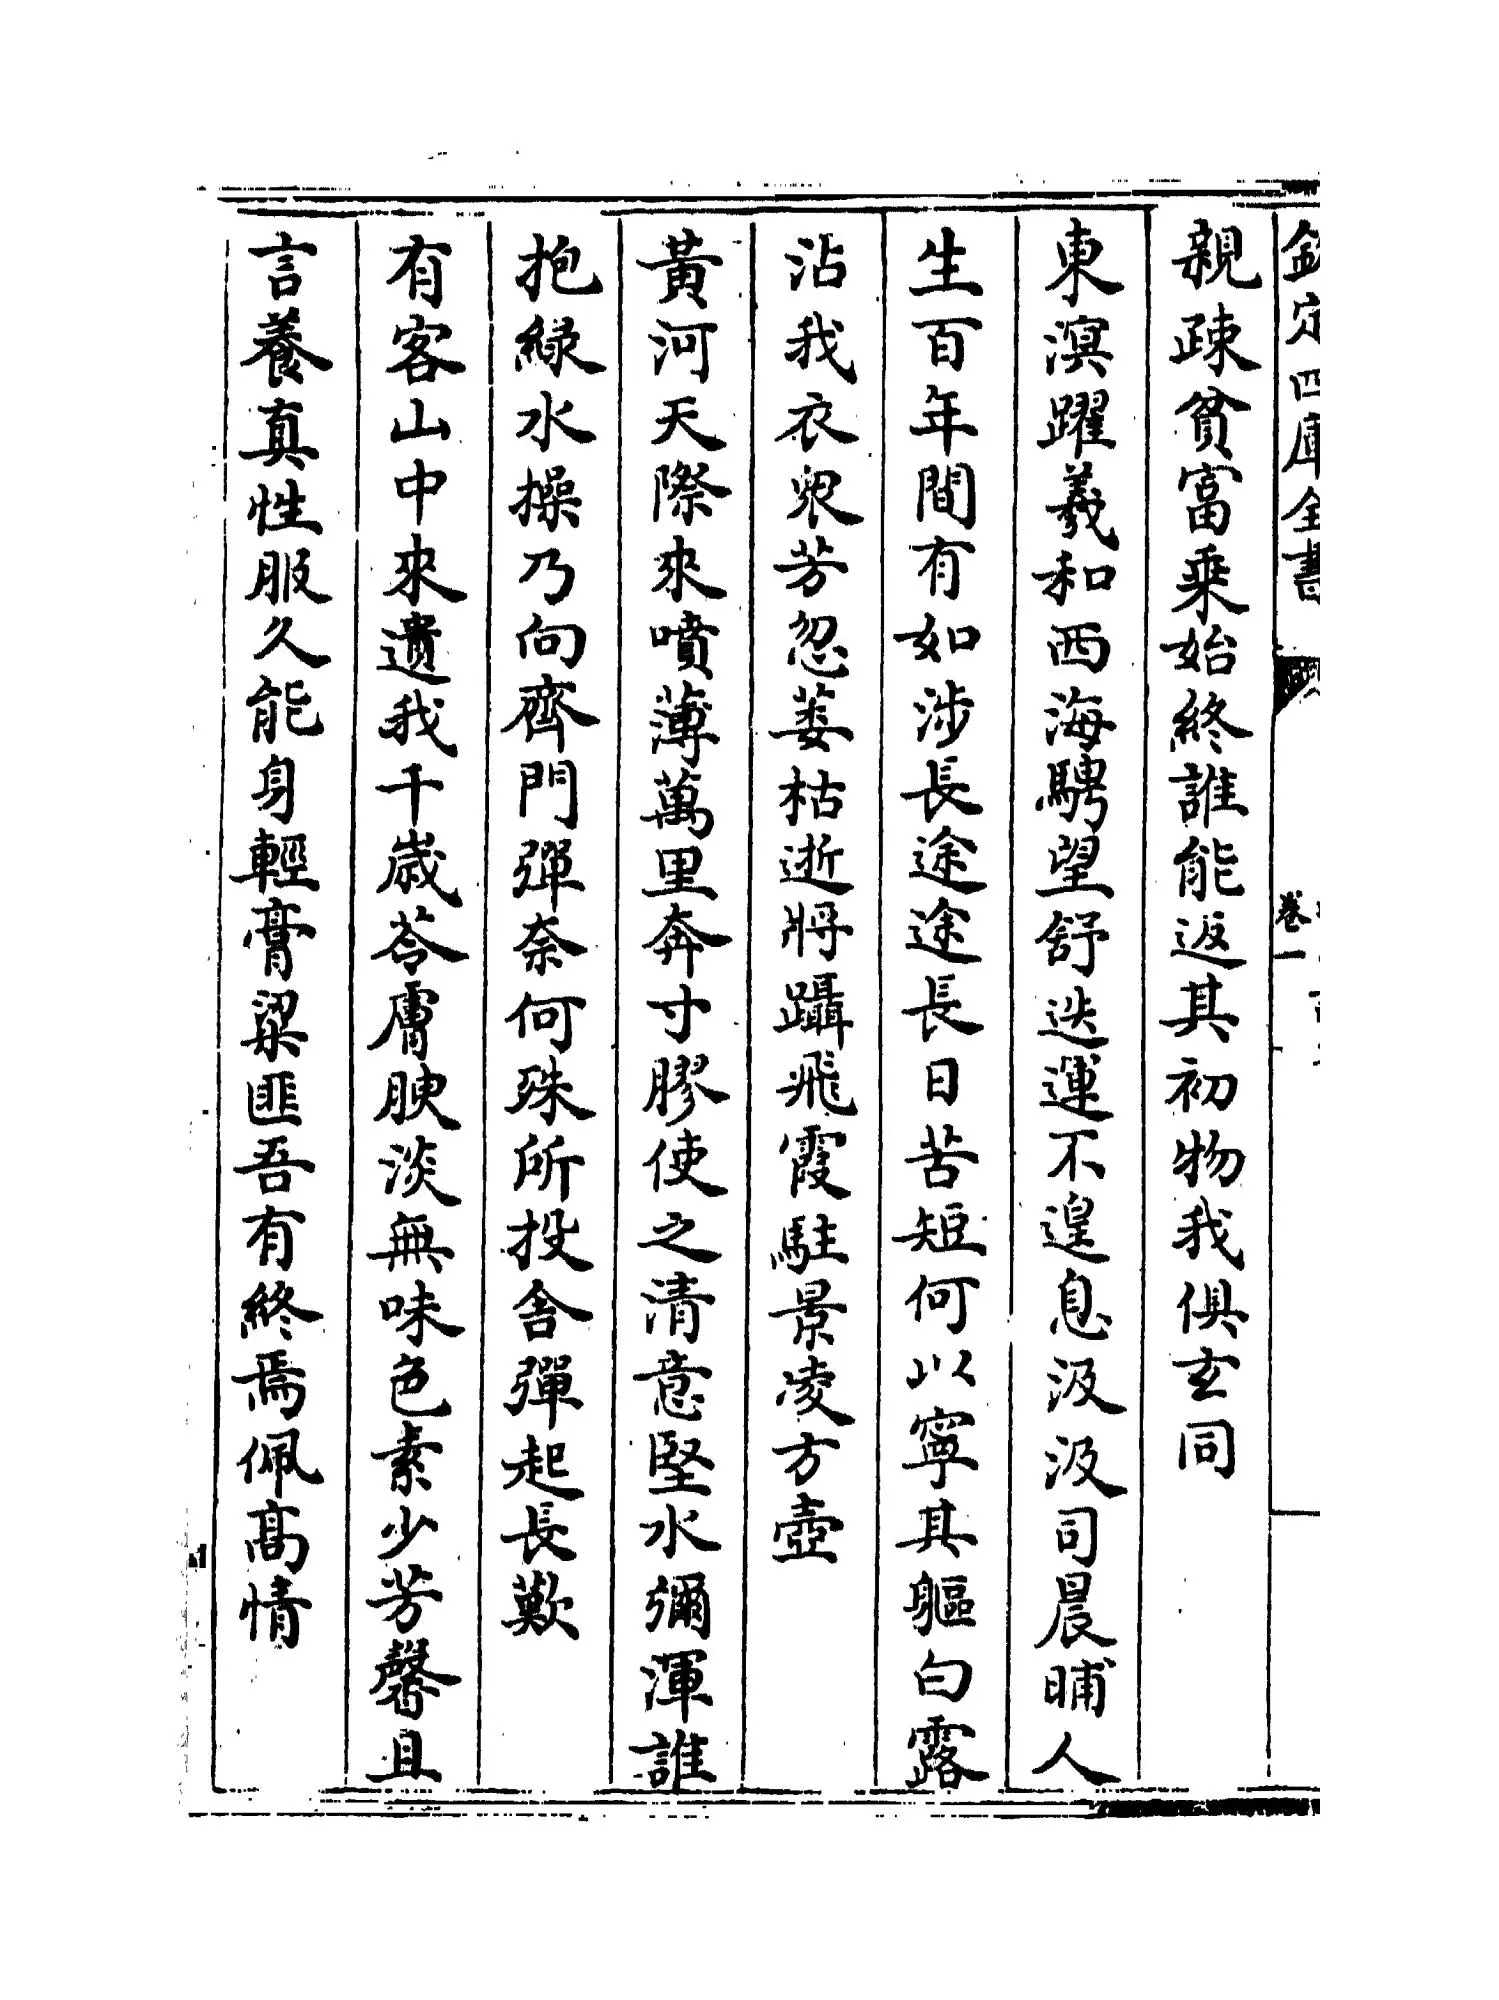 欽定四庫全書
卷一
親疎貧富乘始終誰能返其初物我俱玄同
東溟躍羲和西海騁望舒迭運不遑息汲汲司晨晡人
生百年間有如涉長途途長日苦短何以寧其軀白露
沾我衣衆芳忽萎枯逝將躡飛霞駐景凌方壺
黃河天際來噴薄萬里奔寸膠使之清意堅水彌渾誰
抱綠水操乃向齊門彈奈何殊所投舍彈起長歎
有客山中來遺我千歲苓膚腴淡無味色素少芳馨且
言養真性服久能身輕膏粱匪吾有終焉佩高情